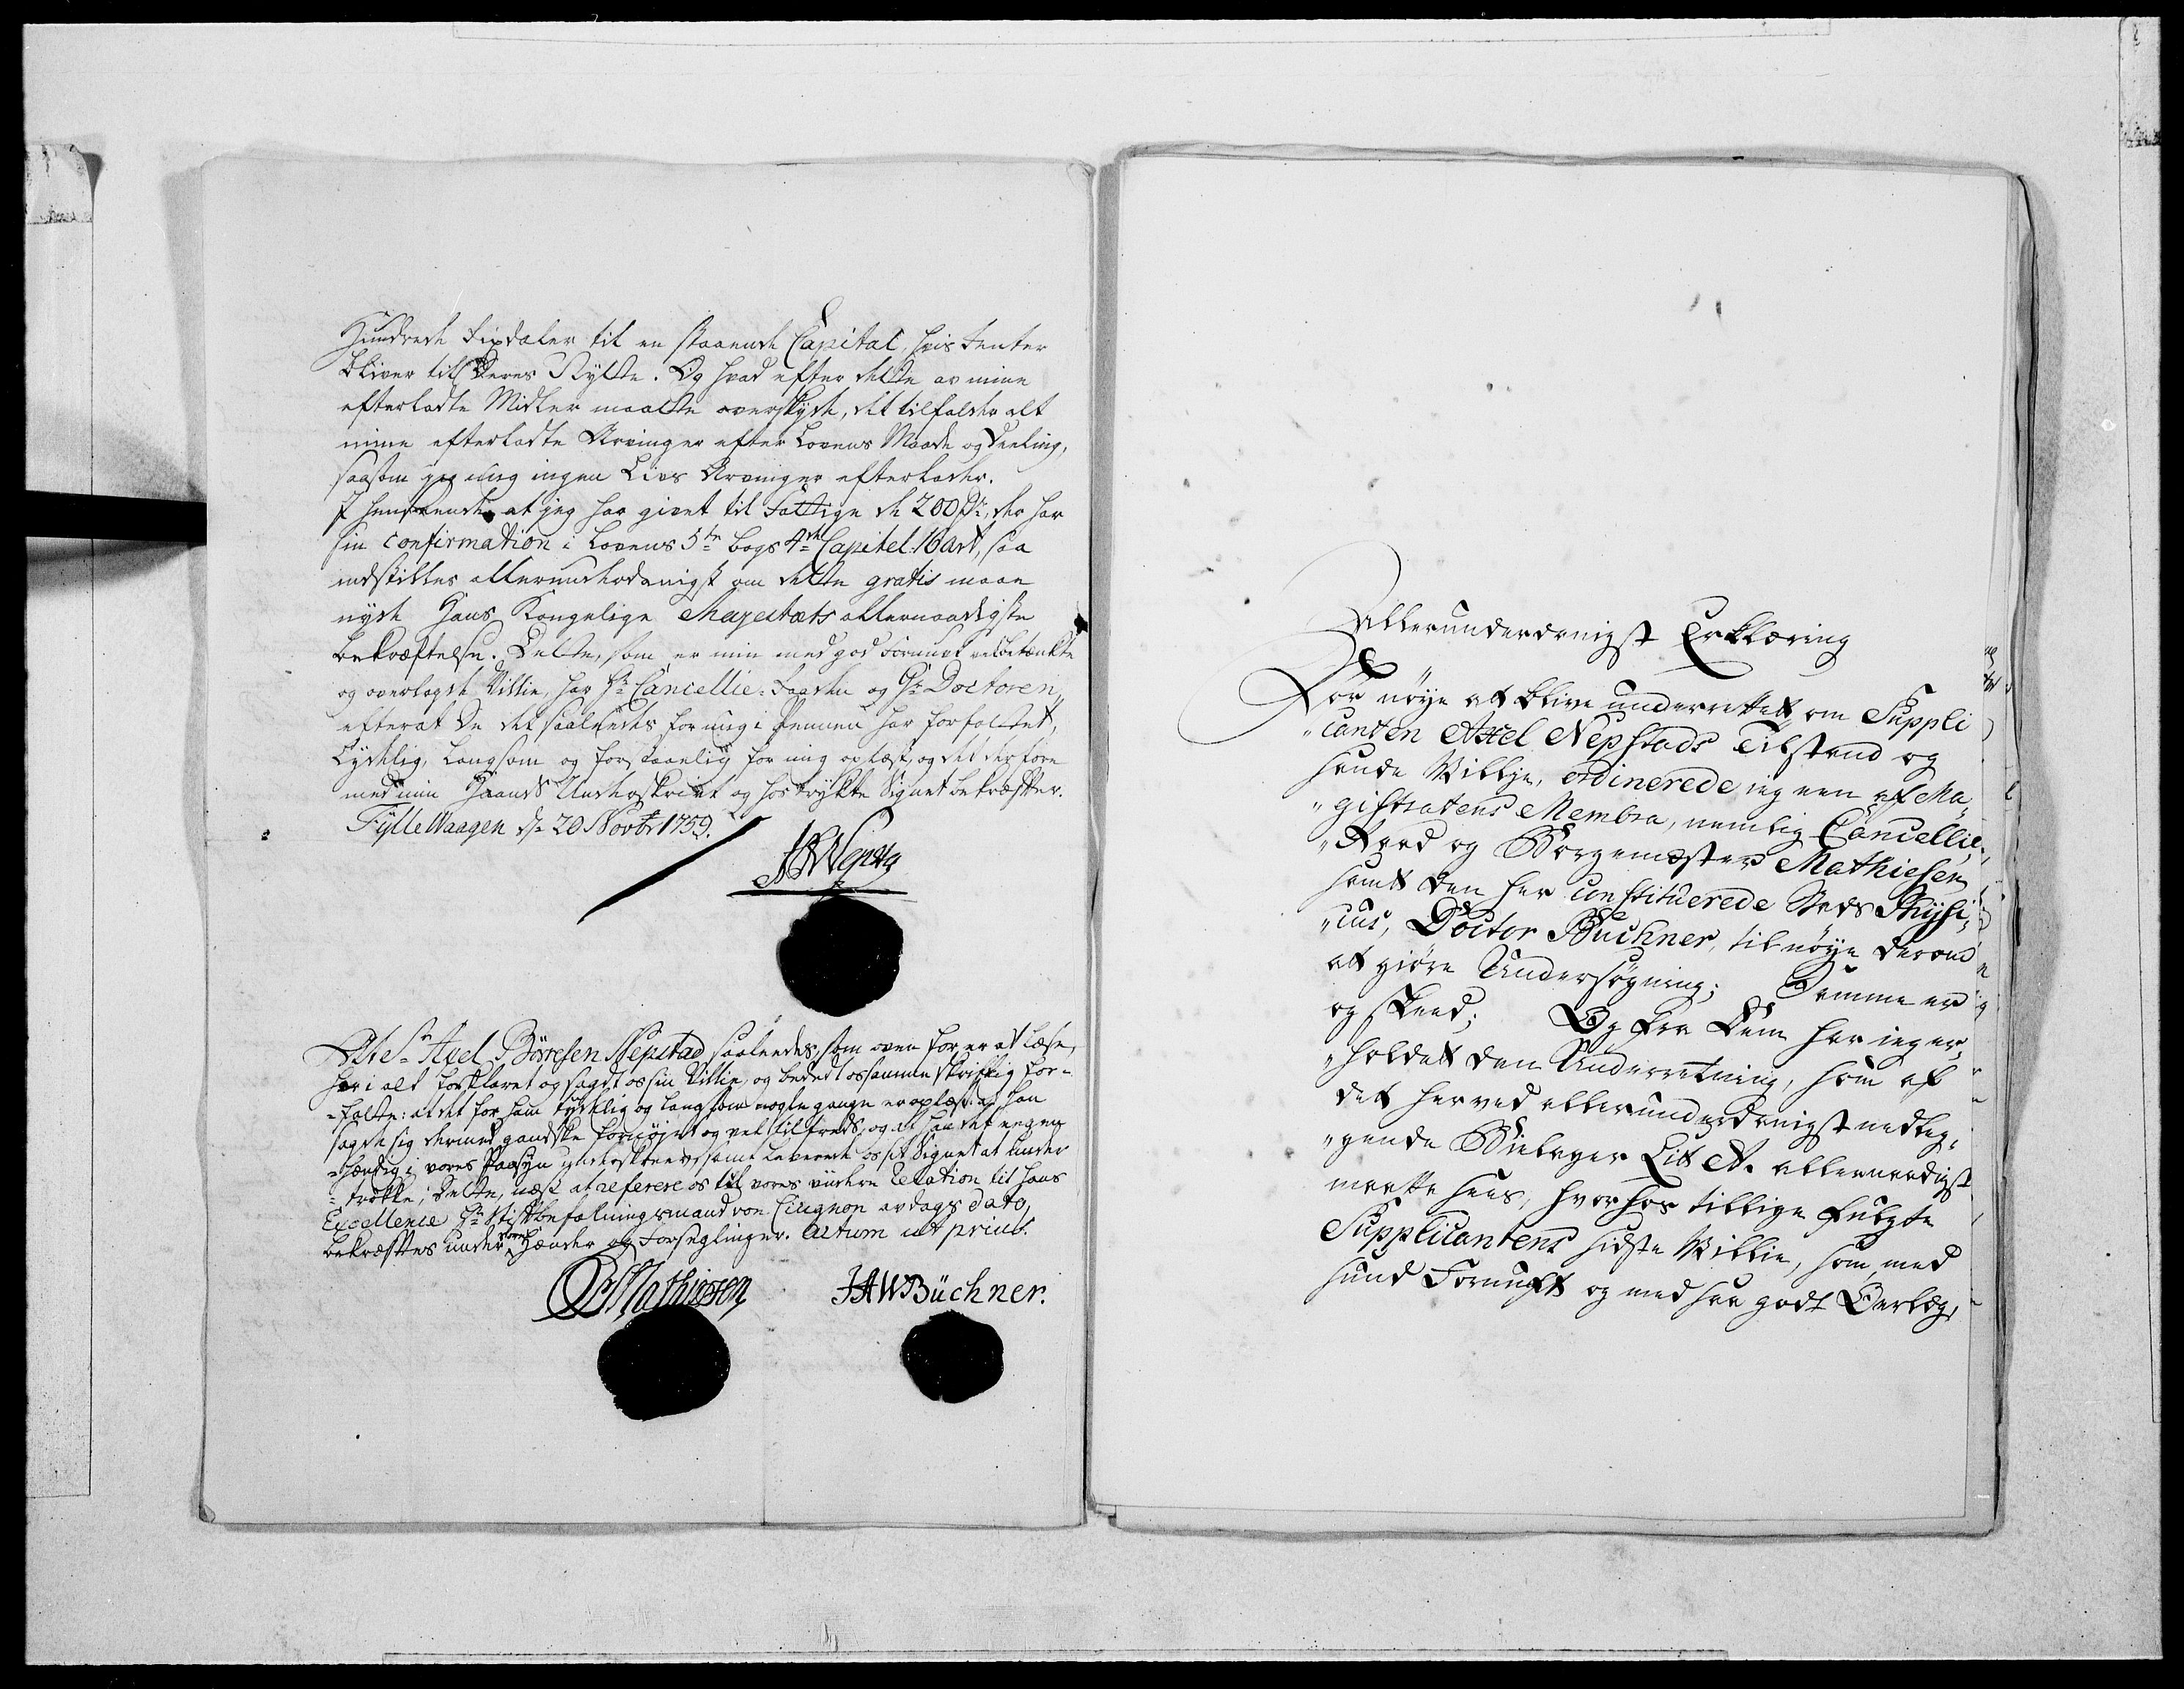 Hundrede Rixdaler til en staaende Capital, hvis Renter
bliver til Deres Nytte. Og hvad efter dette av mine
efterladte Midler maatte overskyde, det tilfalder alt
mine efterladte Arvinger efter Lovens Maade og Deeling,
saasom jeg ingen Livs Arvinger efterlader.
I henseende at jeg har givet til Fattige de 200 Rdr, der har
sin confirmation i Lovens 5te bogs 4de Capitel 16 Art, saa
indstilles allerunderdanigst om dette gratis maae
nyde Hans Kongelige Majestæts allernaadigste
bekræftelse. Dette, som er min med god Fornuft velbetænkte
og overlagde Villie, har Hr Cancellie-Raaden og Hr Doctoren,
efterat De det saaledes for mig i Pennen har forfattet,
Tydelig, Langsom og forstaaelig for mig oplæst, og det derfore
med min Haands Underskrivt og hos trykte Signet bekræfter.
Fylle Waagen d. 20 Novbr 1759.
Nepstad
At Sr Axel Börresen Nepstad saaledes, som oven for er at læse,
har i alt forklaret og sagdt os sin Villie, og bededt os samme skriftlig for-
-fatte: at det for ham tydelig og langsom nogle gange er oplæst: at han
sagde sig dermed gandske fornøjet og vel tilfreds, og at han det egen-
-hændig i vores Paasyn underskreev, samt leverede os sit Signet at under
-trøkke; Dette, næst at referere os til vores videre Relation til Hans
Excellence Hr Stiftbefalningsmand von Cicignon av dags dato,
bekræftes under vore Hænder og Forseglinger. Actum ut prius.
Mathiesen JAWBüchner.
Allerunderdanigst Erklæring
For nøye at blive underrettet om Suppli
"canten Axel Nepstads Tilstand og
sande Willie, ordinerede jeg een af Ma,
"gistratens Membra, nemlig Cancellie,
"Raad og Borgemæster Mathiesen
samt den her constituerede Stads Physi,
"cus, Doctor Büchner, til nøye derom
at giøre Undersøgning; Samme er
og skeed; Og fra Dem har jeg er,
"holdet den Underretning, som af
det herved allerunderdanigst vedlag,
"gende Bielager Lit A. allernaadigst
maatte sees, hvorhos tillige fulgte
Supplicantens sidste Willie, som med
sund Fornuft og med saa godt Overlæg,